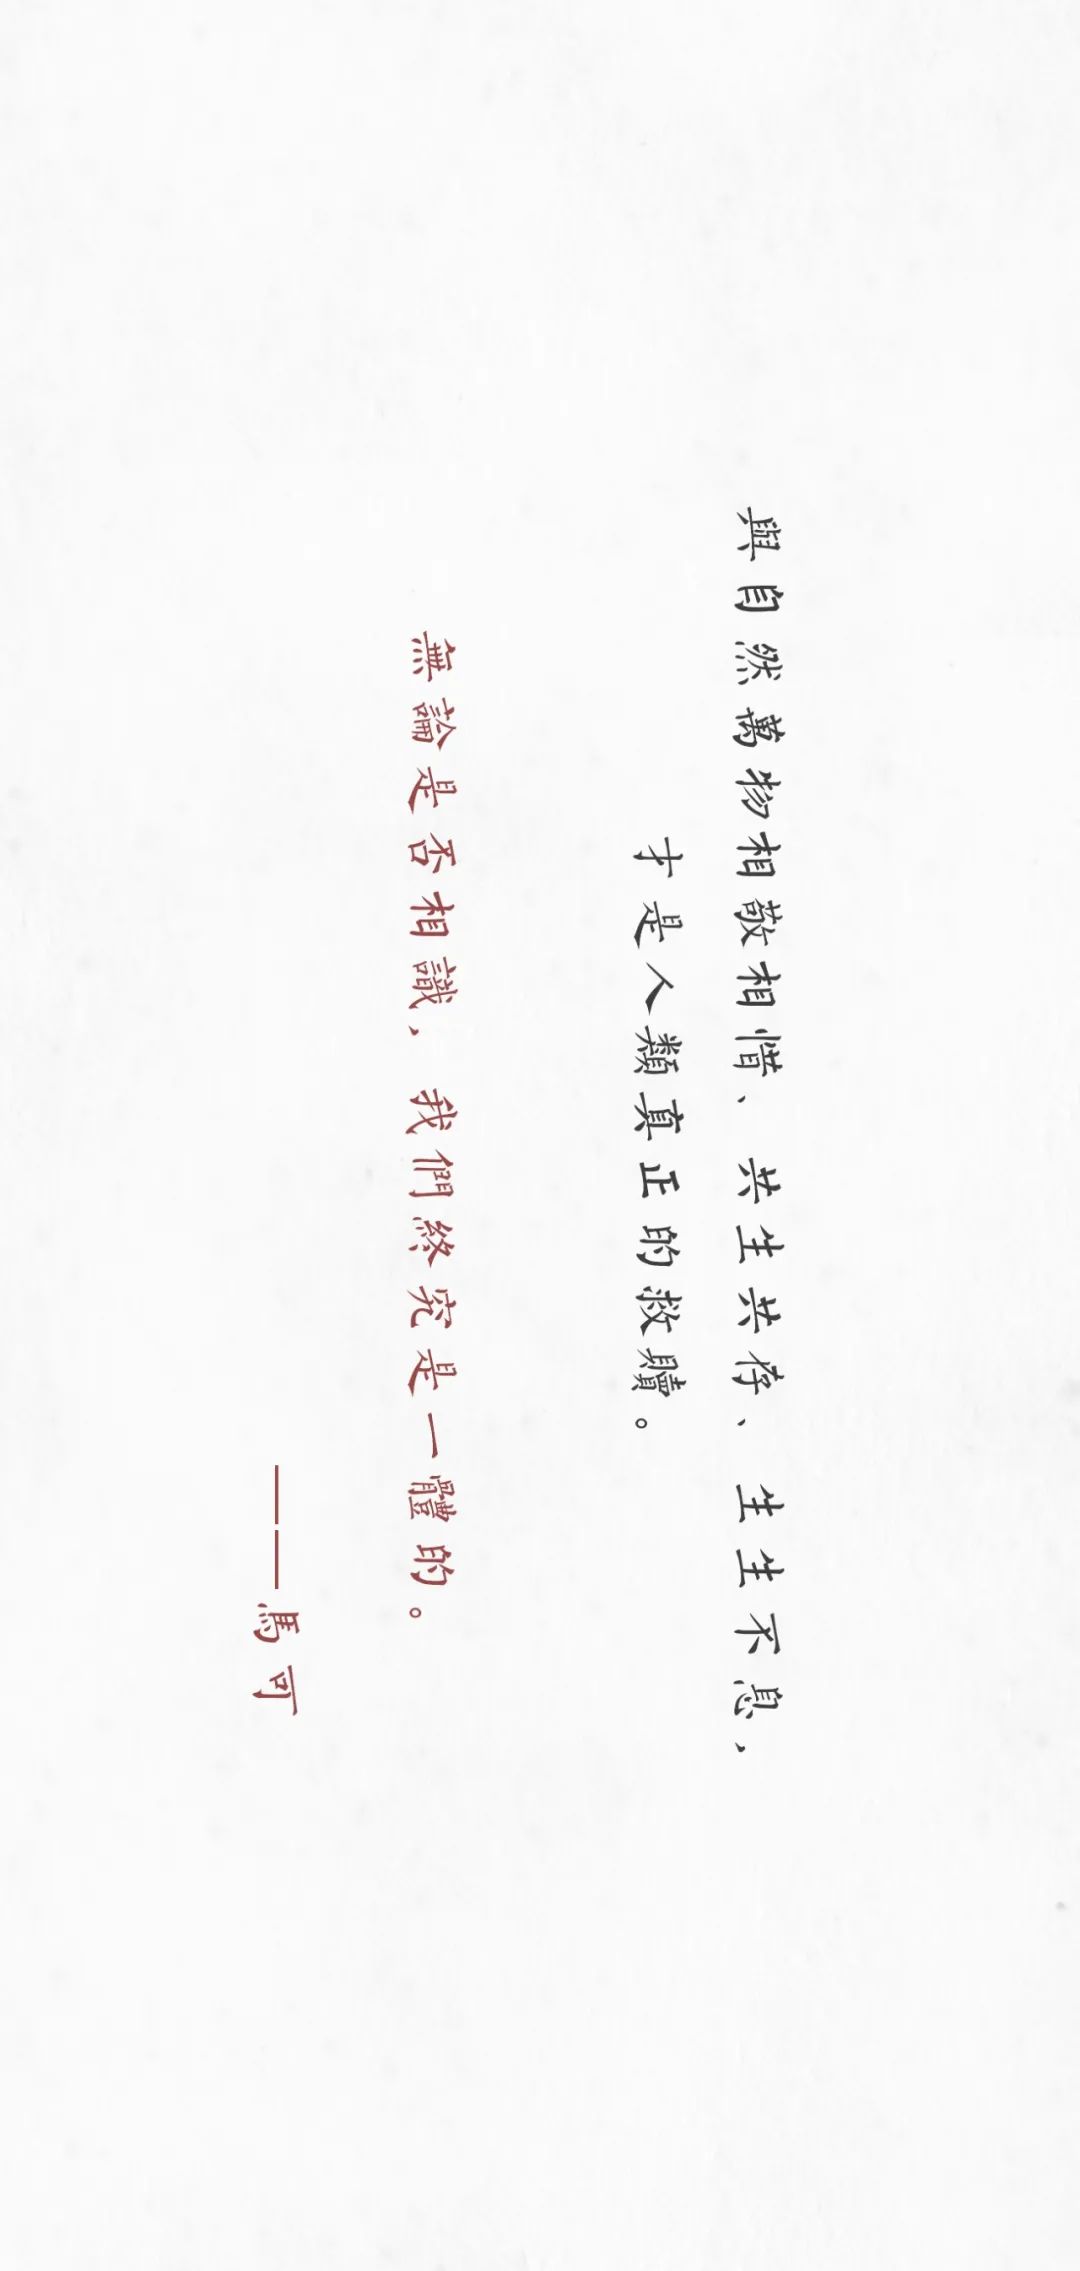 與自然萬物相敬相惜、共生共存、生生不息,
才是人類真正的救贖。
無論是否相識,我們終究是一體的。
——馬可